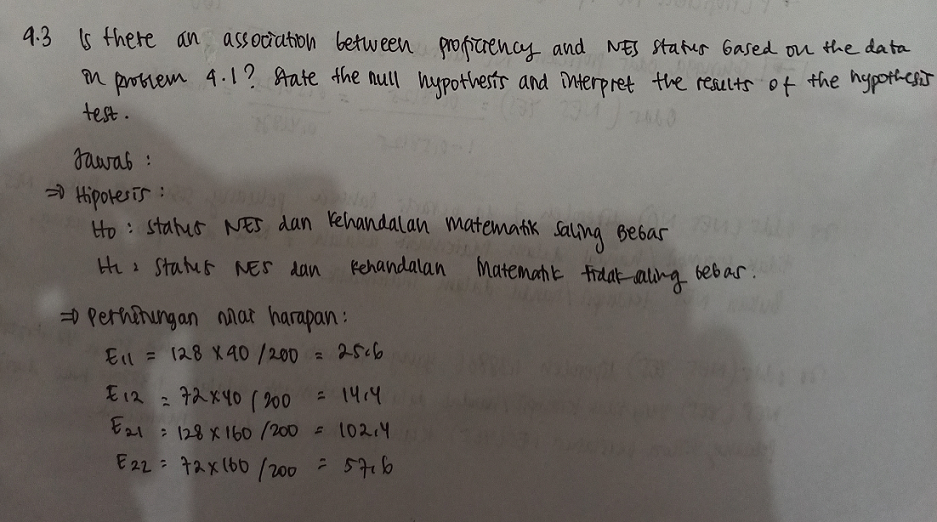 4.3 Is there an association between proficiency and NES status based on the data
in problem 4.1? State the null hypothesis and interpret the results of the hypothesis
test.
Jawab :
⇒ Hipotesis :
Ho : status NES dan Kehandalan Matematik Saling Bebas
H1 : Status NES dan Kehandalan Matematik tidak saling bebas.
⇒ Perhitungan nilai harapan:
E11 = 128 x 40 /200 = 25,6
E12 = 72x40 /200 = 14,4
E21 = 128 x 160 /200 = 102,4
E22 = 72x160 /200 = 57,6